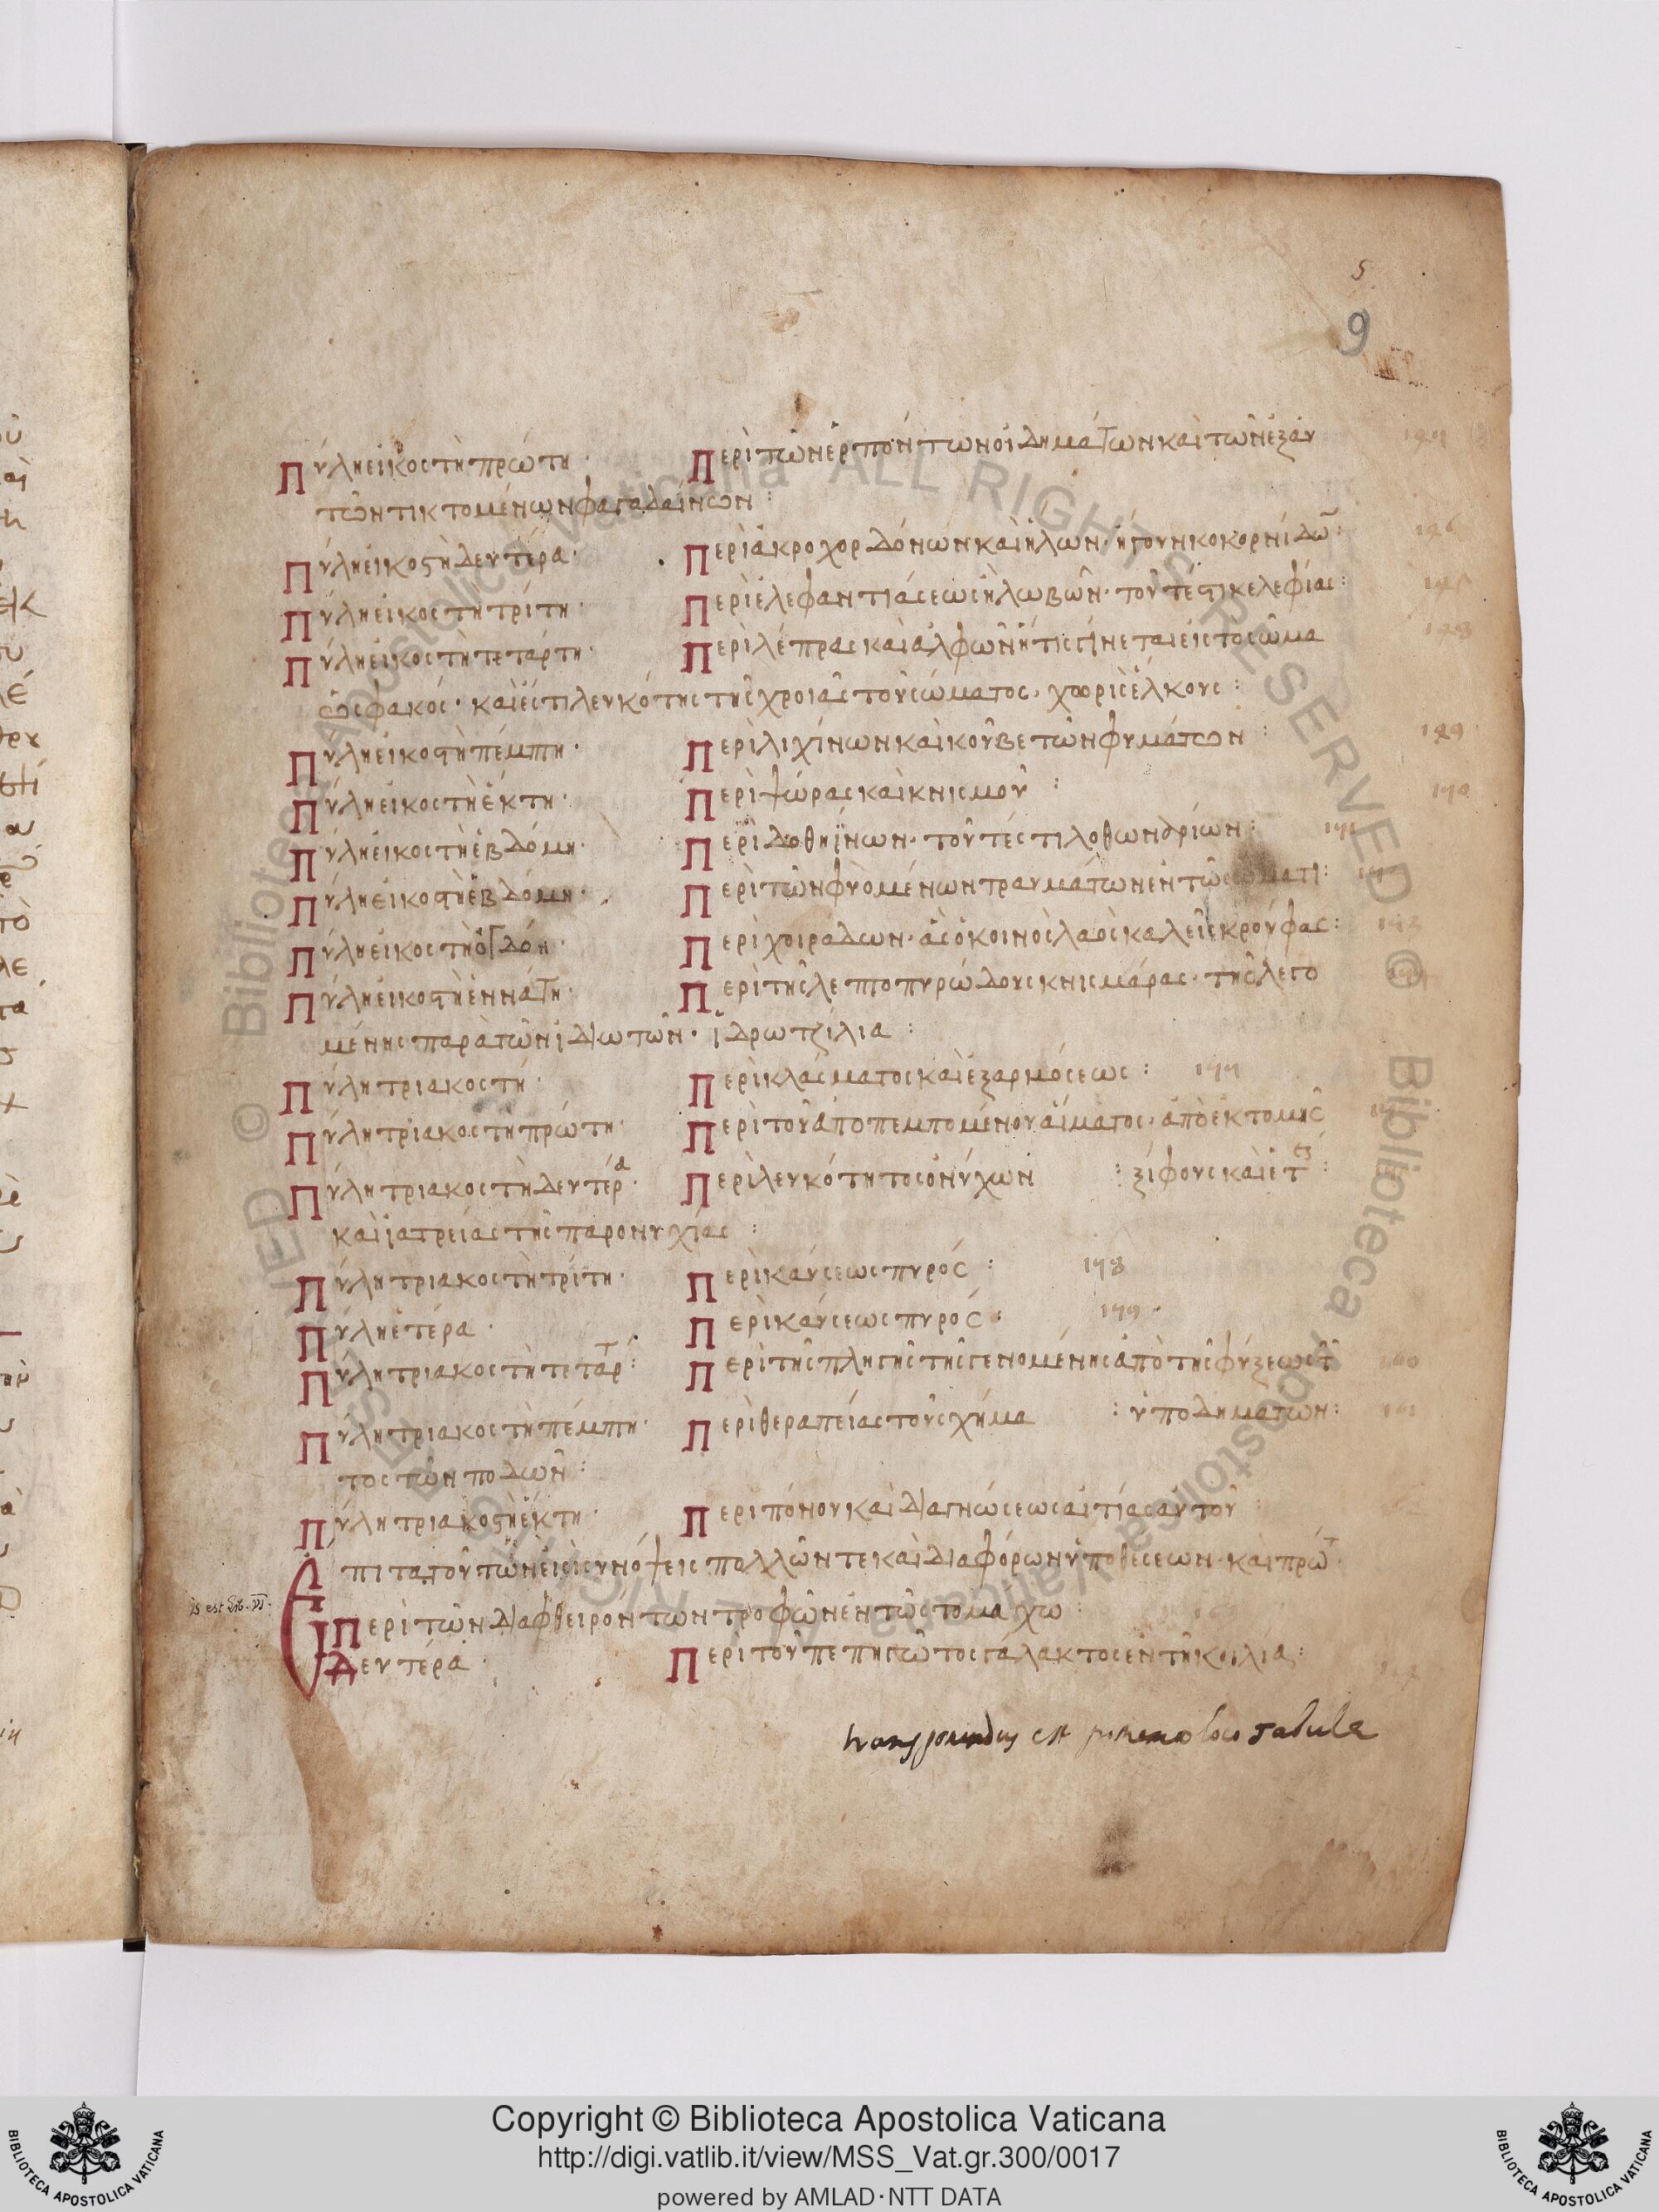 5
9
Πύλη εἰκοστὴ πρώτη· Περὶ τῶν ἑρπόντων οἰδημάτων καὶ τῶν ἐξ αὐ
τῶν τικτομένων φαγαδαίνων:
Πύλη εἰκοστὴ δευτέρα· Περὶ ἀκροχορδόνων καὶ ἥλων· ἤγουν κοκορνίδω̅:
Πύλη εἰκοστὴ τρίτη· Περὶ ἐλεφαντιάσεως ἢ λωβῶν· τουτέστι κελεφίας:
Πύλη εἰκοστὴ τετάρτη· Περὶ λέπρας καὶ ἀλφῶν ἥτις γίνεται εἰς τὸ σῶμα
ὡς φακός· καὶ ἔστι λευκότης τῆς χροιᾶς τοῦ σώματος, χωρὶς ἕλκους:
Πύλη εἰκοστὴ πέμπτη· Περὶ λιχίνων καὶ κούβε τῶν φυμάτων:
Πύλη εἰκοστὴ ἕκτη· Περὶ ψώρας καὶ κνισμοῦ:
Πύλη εἰκοστὴ ἑβδόμη· Περὶ δοθηΐνων· τουτέστι λοθωνδρίων:
Πύλη εἰκοστὴ ἑβδόμη· Περὶ τῶν φυομένων τραυμάτων ἐν τῶ σώματι:
Πύλη εἰκοστὴ ὀγδόη· Περὶ χοιράδων· ἃς ὁ κοινὸς λαὸς καλεῖ σκρούφας:
Πύλη εἰκοστὴ ἐννάτη· Περὶ τῆς λεπτοπυρώδους κνισμάρας· τῆς λεγο
μένης παρὰ τῶν ἰδιωτῶν· ἱδρωτζίλια:
Πύλη τριακοστή· Περὶ κλάσματος καὶ ἐξαρμόσεως:
Πύλη τριακοστὴ πρώτη· Περὶ τοῦ ἀποπεμπομένου αἵματος· ἀπὸ ἐκτομῆς
Πύλη τριακοστὴ δευτέρα· Περὶ λευκότητος ὀνύχων : ξίφους καὶ ἑτ:
καὶ ἰατρείας τῆς παρονυχίας:
Πύλη τριακοστὴ τρίτη· Περὶ καύσεως πυρός: 178
Πύλη ἑτέρα· Περὶ καύσεως πυρός· 179
Πύλη τριακοστὴ τετάρτ: Περὶ τῆς πληγῆς τῆς γενομένης ἀπὸ τῆς φύξεως τ
Πύλη τριακοστὴ πέμπτη· Περὶ θεραπείας τοῦ σχήμα : ὑποδημάτων:
τος τῶν ποδῶν:
Πύλη τριακοστὴ ἕκτη· Περὶ πόνου καὶ διαγνώσεως αἰτίας αὐτοῦ:
Ἐπὶ τατουτῶν εἰσὶ συνόψεις πολλῶν τε καὶ διαφόρων ὑποθέσεων· καὶ πρώτ
is est lib. VI.
Περὶ τῶν διαφθειρόντων τροφῶν ἐν τῶ στομάχω:
Δευτέρα· Περὶ τοῦ πεπηγῶτος γάλακτος ἐν τῆ κοιλίᾳ:
transponendus est tabula
Copyright © Biblioteca Apostolica Vaticana
http://digi.vatlib.it/view/MSS_Vat.gr.300/0017
powered by AMLAD·NTT DATA
BIBLIOTECA APOSTOLICA VATICANA
BIBLIOTECA APOSTOLICA VATICANA